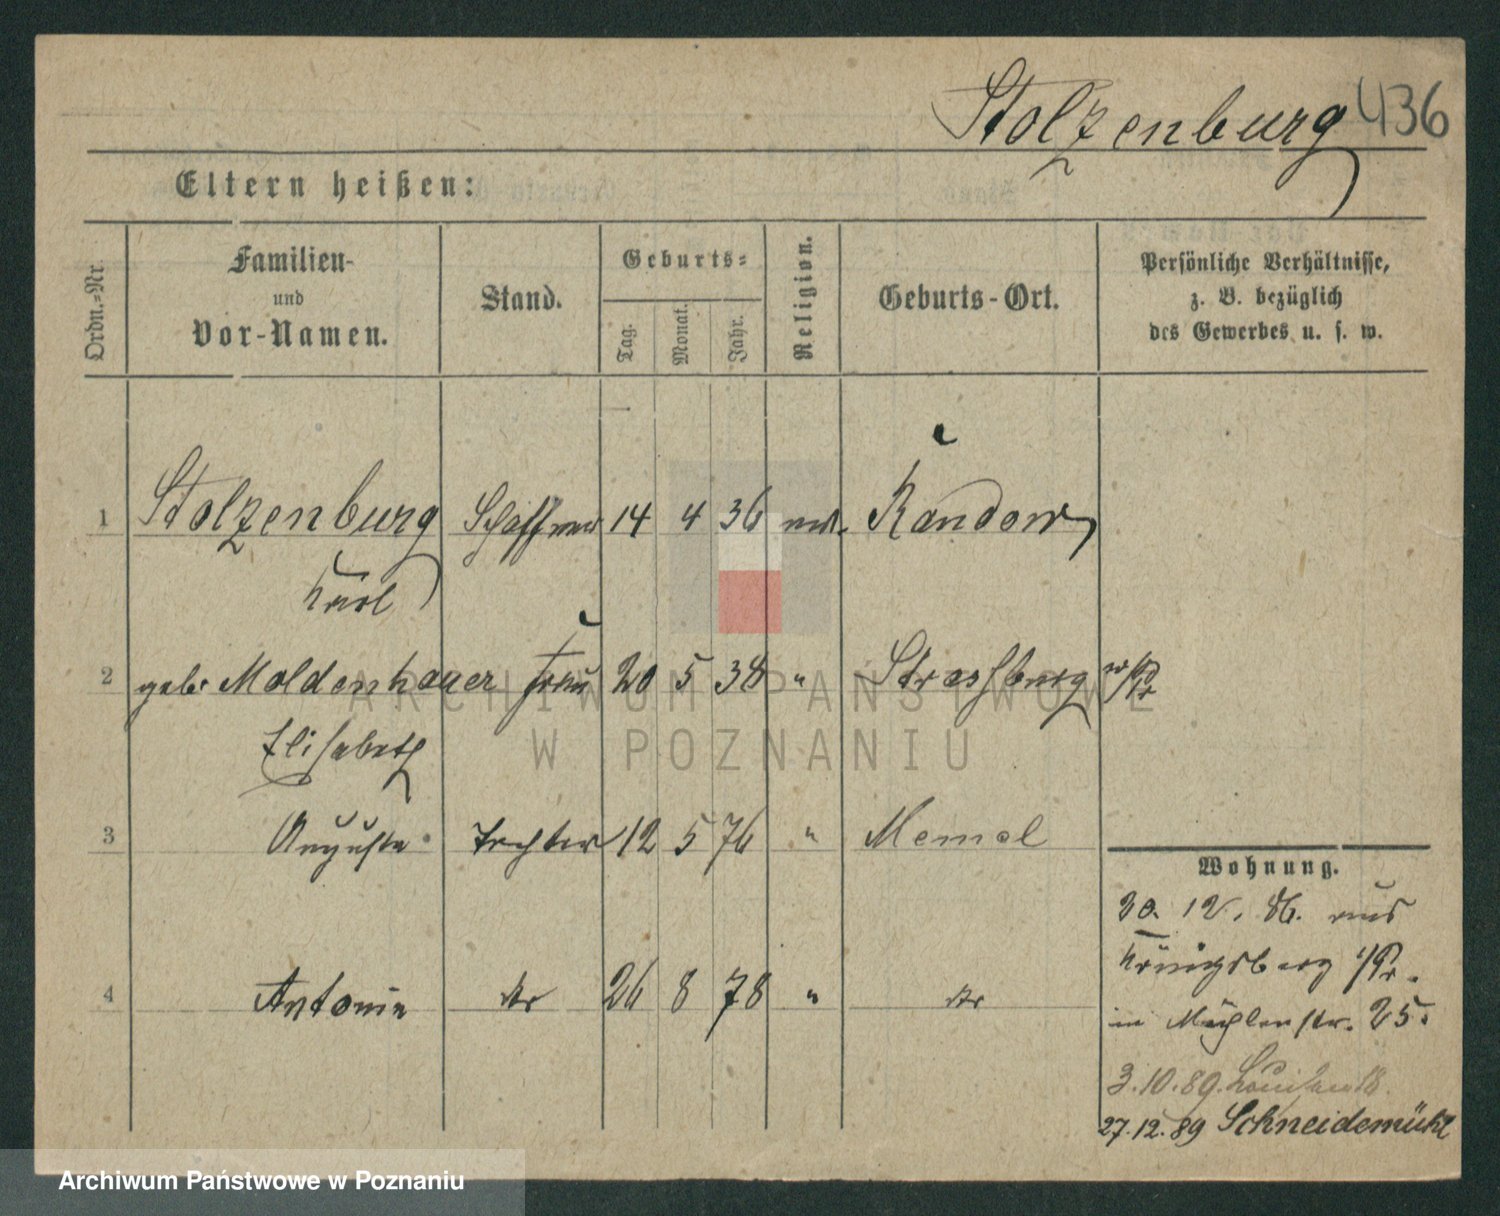 Stolzenburg 436
Eltern heißen:
Ordn.-Nr.
Familien-
und
Vor-Namen.
Stand.
Geburts-
Tag.
Monat.
Jahr.
Religion.
Geburts-Ort.
Persönliche Verhältnisse,
z. B. bezüglich
des Gewerbes u. s. w.
1 Stolzenburg Schaffner 14 4 36 Randow
Karl
2 geb. Moldenhauer Frau 20 5 38 " Strassburg w/Pr
Elisabeth
3 Auguste Tochter 12 5 76 " Memel
4 Antonie do 26 8 78 " do
Wohnung.
20. 12. 86. aus
Königsberg /Pr.
in Mühlenstr. 25.
3.10.89. Louisen 18.
27.12.89 Schneidemühl
ARCHIWUM PAŃSTWOWE
W POZNANIU
Archiwum Państwowe w Poznaniu